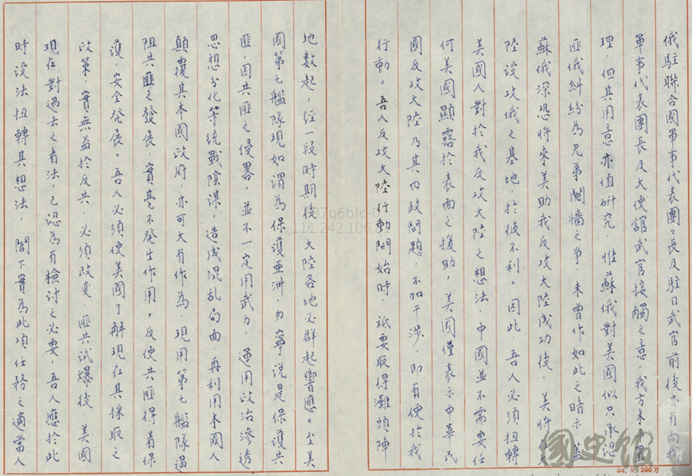 俄駐聯合國軍事代表團團長及駐日武官前後亦有向我
軍事代表團長及大使館武官接觸之意,我方未予
理,但其用意亦值研究。惟蘇俄對美國似只承認
匪俄糾紛為兄弟鬩牆之爭,未曾作如此之暗示,
蘇俄深恐將來美助我反攻大陸成功後,美將
陸設攻俄之基地,於彼不利。因此,吾人必須扭轉
美國人對於我反攻大陸之想法,中國並不需要任
何美國顯露於表面之援助,美國僅表示中華民
國反攻大陸乃其內政問題,不加干涉,即有便於我
行動。吾人反攻大陸行動開始時,祗要取得灘頭陣
地數起,經一段時期後,大陸各地必群起響應。至美
國第七艦隊現如謂為保護亞洲,毋寧說是保護共
匪,因共匪之侵略,並不一定用武力,運用政治滲透、
思想分化等統戰陰謀,造成混亂局面,再利用本國人
顛覆其本國政府,亦可大有作為,現用第七艦隊遏
阻共匪之發展,實毫不發生作用,反使共匪得着保
護,安全發展。吾人必須使美國了解現在其採取之
政策,實無益於反共,必須改變。匪共試爆後,美國
現在對過去之看法,已認為有檢討之必要,吾人應於此
時設法扭轉其想法,閣下實為此項任務之適當人
國史館